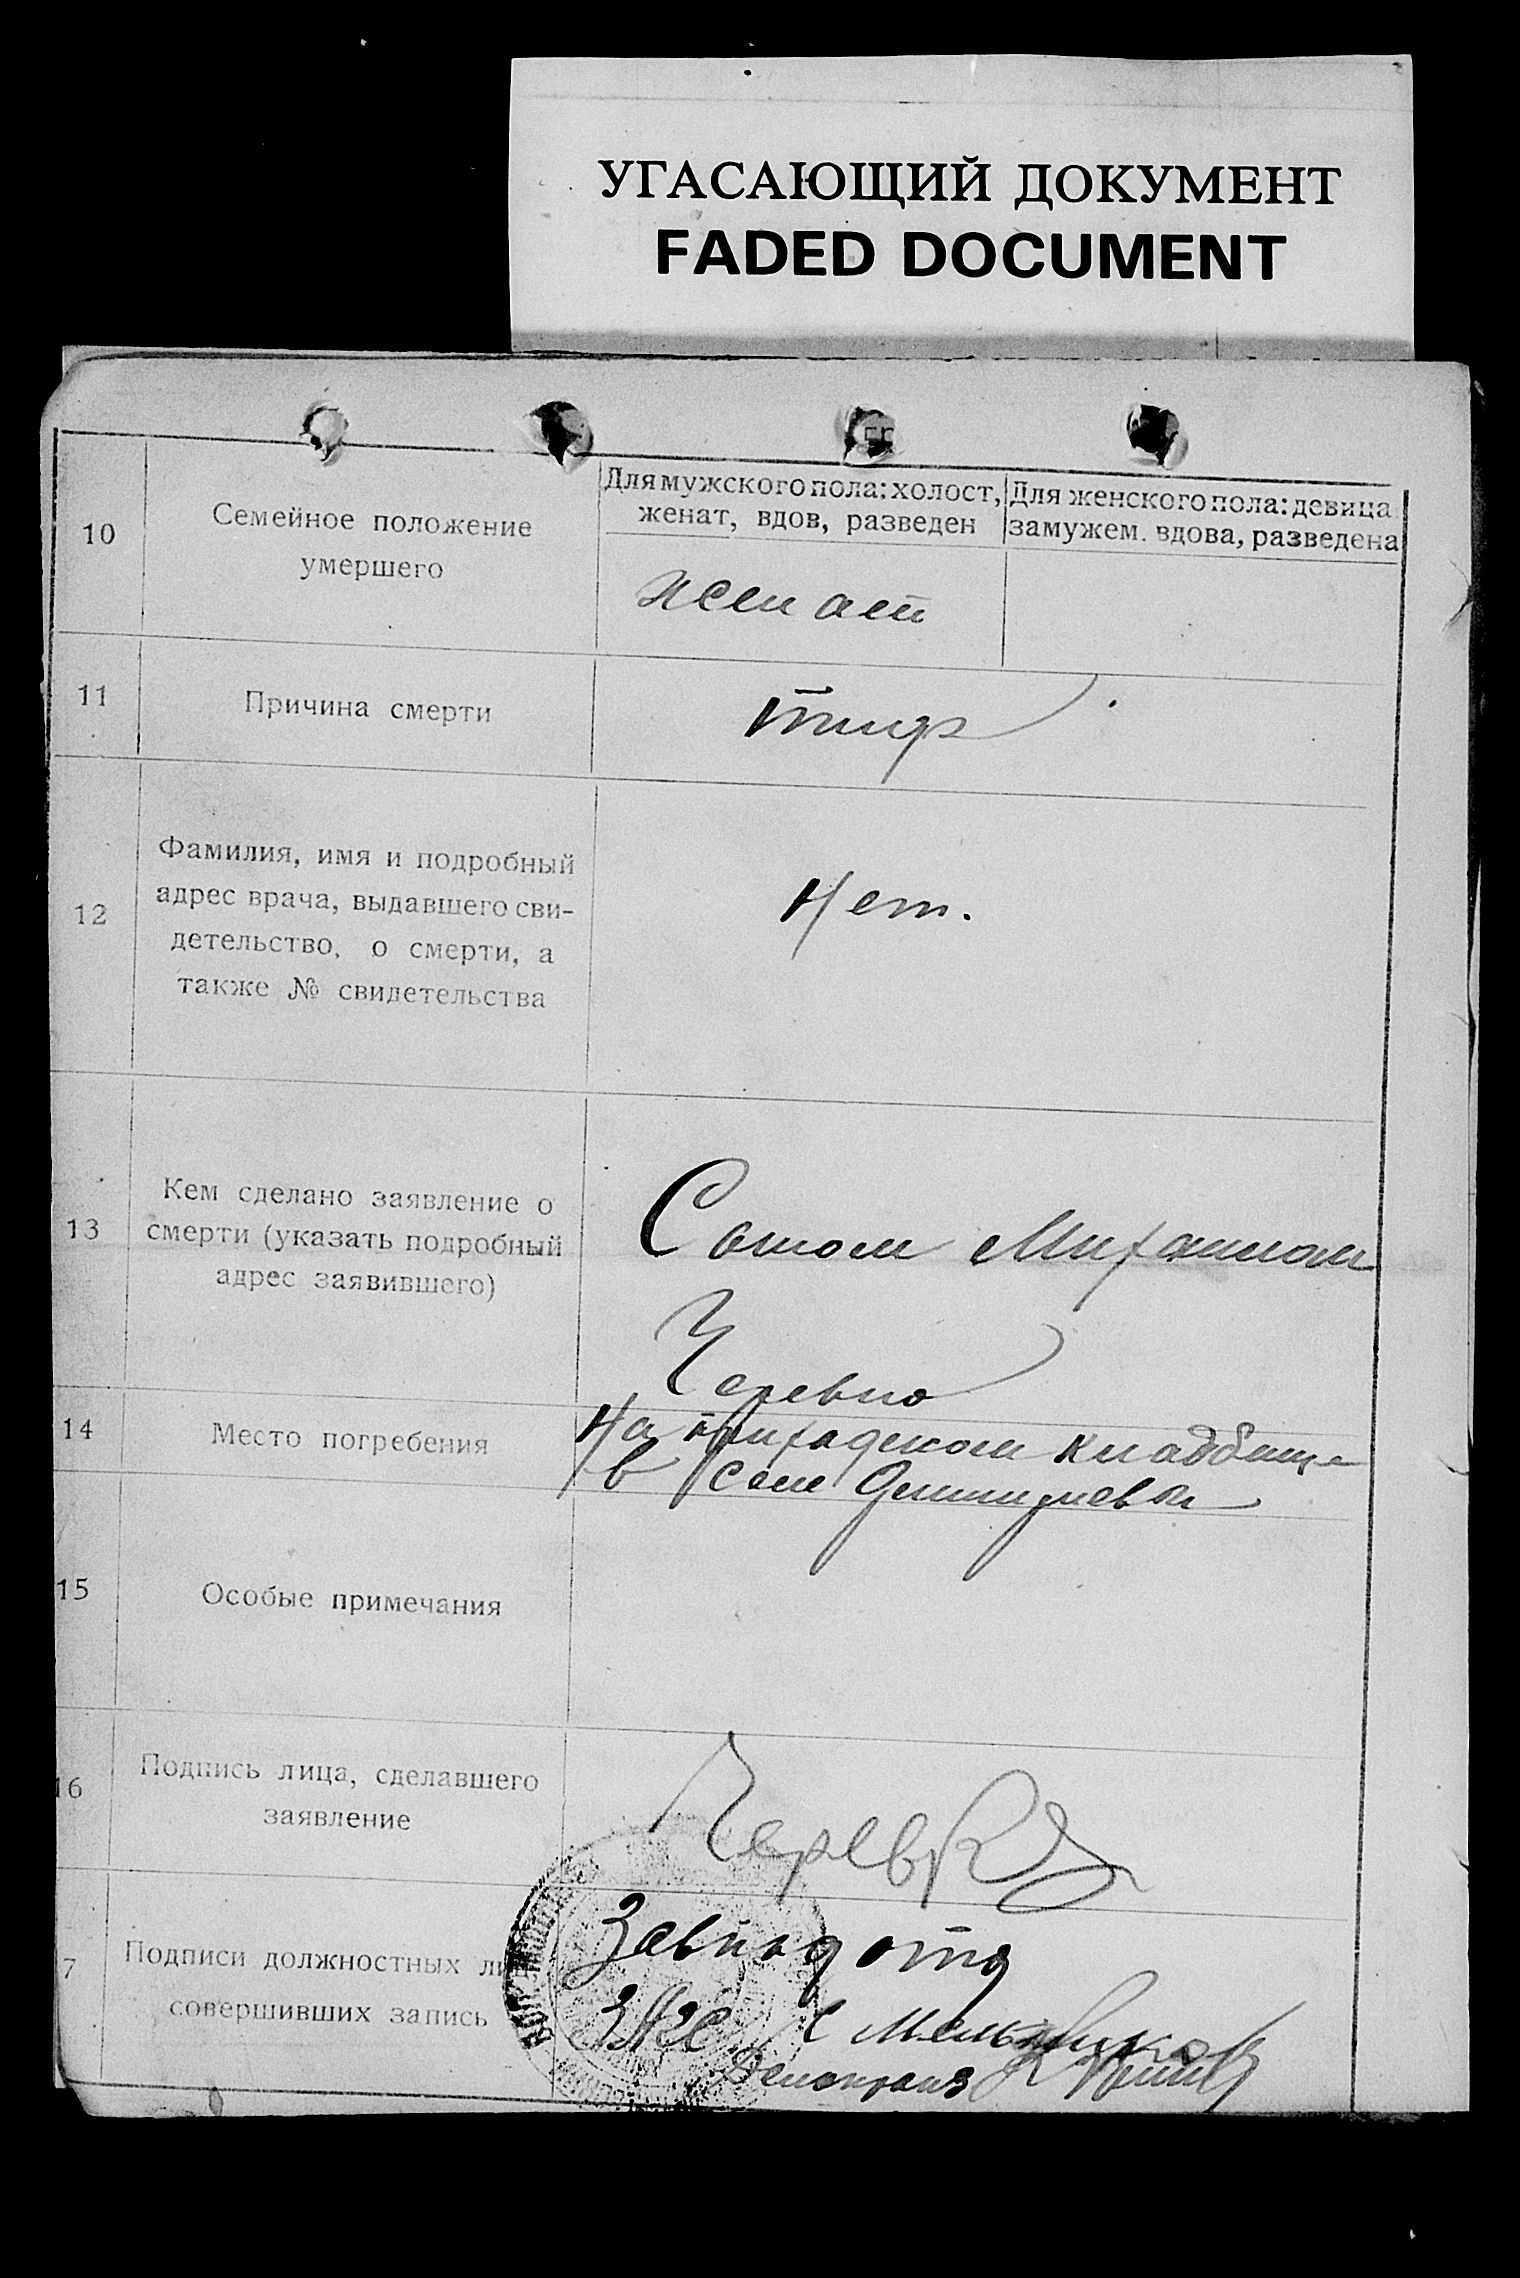 УГАСАЮЩИЙ ДОКУМЕНТ
FADED DOCUMENT
10
Семейное положение
умершего
Для мужского пола: холост,
женат, вдов, разведен
Для женского пола: девица
замужем. вдова, разведена
женат
11
Причина смерти
тиф
12
Фамилия, имя и подробный
адрес врача, выдавшего сви-
детельство, о смерти, а
также № свидетельства
Нет.
13
Кем сделано заявление о
смерти (указать подробный
адрес заявившего)
Сыном Михаилом
Черевко
14
Место погребения
На приходском кладбище
в селе
15
Особые примечания
16
Подпись лица, сделавшего
заявление
Черевко
7
Подписи должностных лиц,
совершивших запись
Завподотд
ЗАГС Мельников
Делопроиз